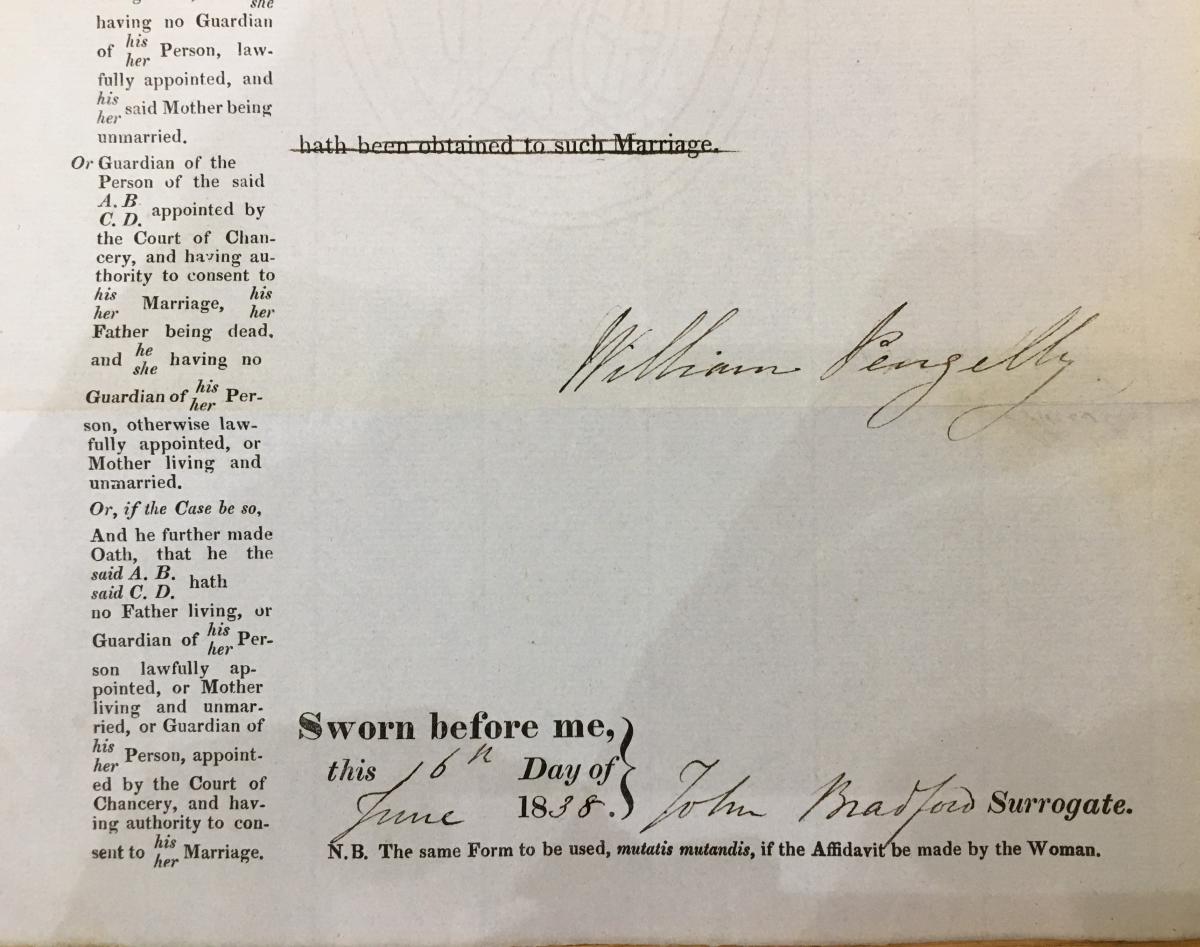 she
having no Guardian
of his her Person, law-
fully appointed, and
his her said Mother being
unmarried.
Or Guardian of the
Person of the said
A. B. C. D. appointed by
the Court of Chan-
cery, and having au-
thority to consent to
his her Marriage, his her
Father being dead,
and he she having no
Guardian of his her Per-
son, otherwise law-
fully appointed, or
Mother living and
unmarried.
Or, if the Case be so,
And he further made
Oath, that he the
said A. B. said C. D. hath
no Father living, or
Guardian of his her Per-
son lawfully ap-
pointed, or Mother
living and unmar-
ried, or Guardian of
his her Person, appoint-
ed by the Court of
Chancery, and hav-
ing authority to con-
sent to his her Marriage.
hath been obtained to such Marriage.
William Pengelly
Sworn before me,
this 16th Day of
June 1838.
John Bradford Surrogate.
N.B. The same Form to be used, mutatis mutandis, if the Affidavit be made by the Woman.